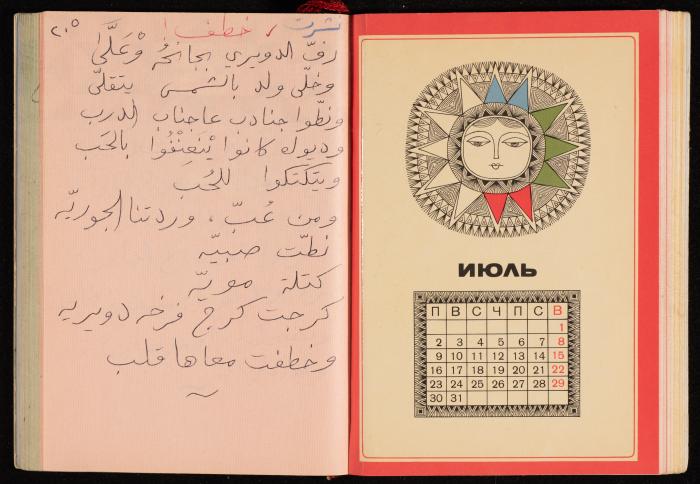 ٢٠٥
نشرت ✓ خطف!
رفّ الدويري بجانحُه وْعَلَّى
وخلّى ولد بالشمس يتقلّى
ونطّوا جنادب عاجناب الدرب
وديوك كانوا يْنَعِنْفُوا بالحَب
ويتَكتكوا للحُب
ومن عُبّ، وردتنا الجوريّه
نطّت صبيّه
كتلة مويّه
كرجت كرج فرخه دويريه
وخطفت معاها قلب
ИЮЛЬ
П В С Ч П С В
1
2 3 4 5 6 7 8
9 10 11 12 13 14 15
16 17 18 19 20 21 22
23 24 25 26 27 28 29
30 31